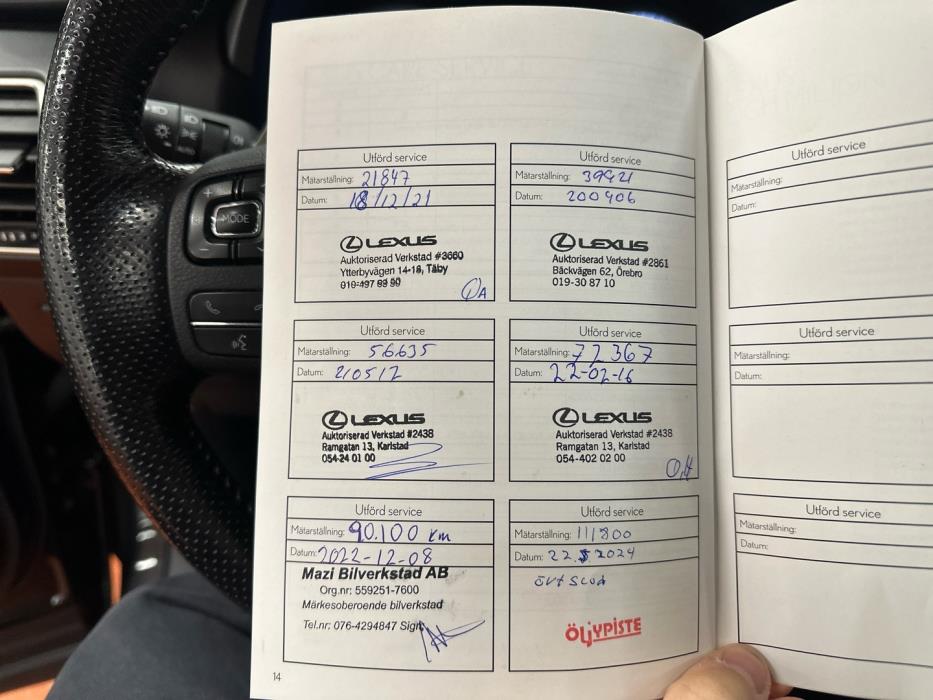 MODE
Utförd service
Mätarställning: 21847
Datum: 18/12/21
LEXUS
Auktoriserad Verkstad #3660
Ytterbyvägen 14-18, Täby
Utförd service
Mätarställning: 39921
Datum: 200406
LEXUS
Auktoriserad Verkstad #2861
Bäckvägen 62, Örebro
019-30 87 10
Utförd service
Mätarställning: 56635
Datum: 210512
LEXUS
Auktoriserad Verkstad #2438
Ramgatan 13, Karlstad
054-24 01 00
Utförd service
Mätarställning: 72367
Datum: 22-02-16
LEXUS
Auktoriserad Verkstad #2438
Ramgatan 13, Karlstad
054-402 02 00
Utförd service
Mätarställning: 90.100 km
Datum: 2022-12-08
Mazi Bilverkstad AB
Org.nr: 559251-7600
Märkesoberoende bilverkstad
Tel.nr: 076-4294847 Sign
Utförd service
Mätarställning: 111800
Datum: 22 5 2024
ÖLJYPISTE
14
Utförd service
Mätarställning:
Datum:
Utförd service
Mätarställning:
Datum:
Utförd service
Mätarställning:
Datum: